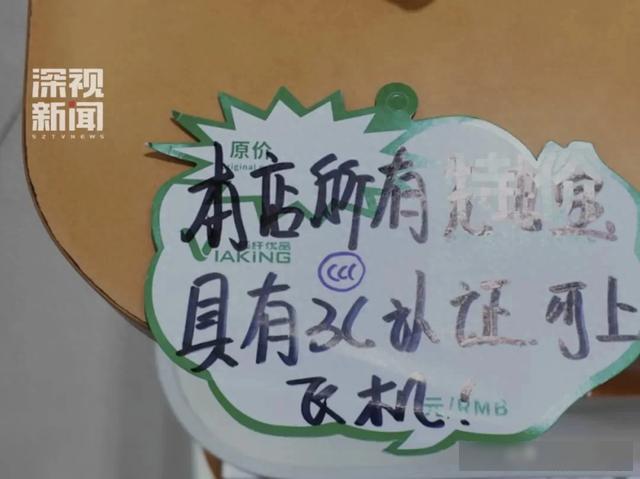 深视
新闻
SZTVNEWS
原价
特价
本店所有充电宝
VIAKING
纤优品
CCC
具有3C认证可上
飞机!
元/RMB